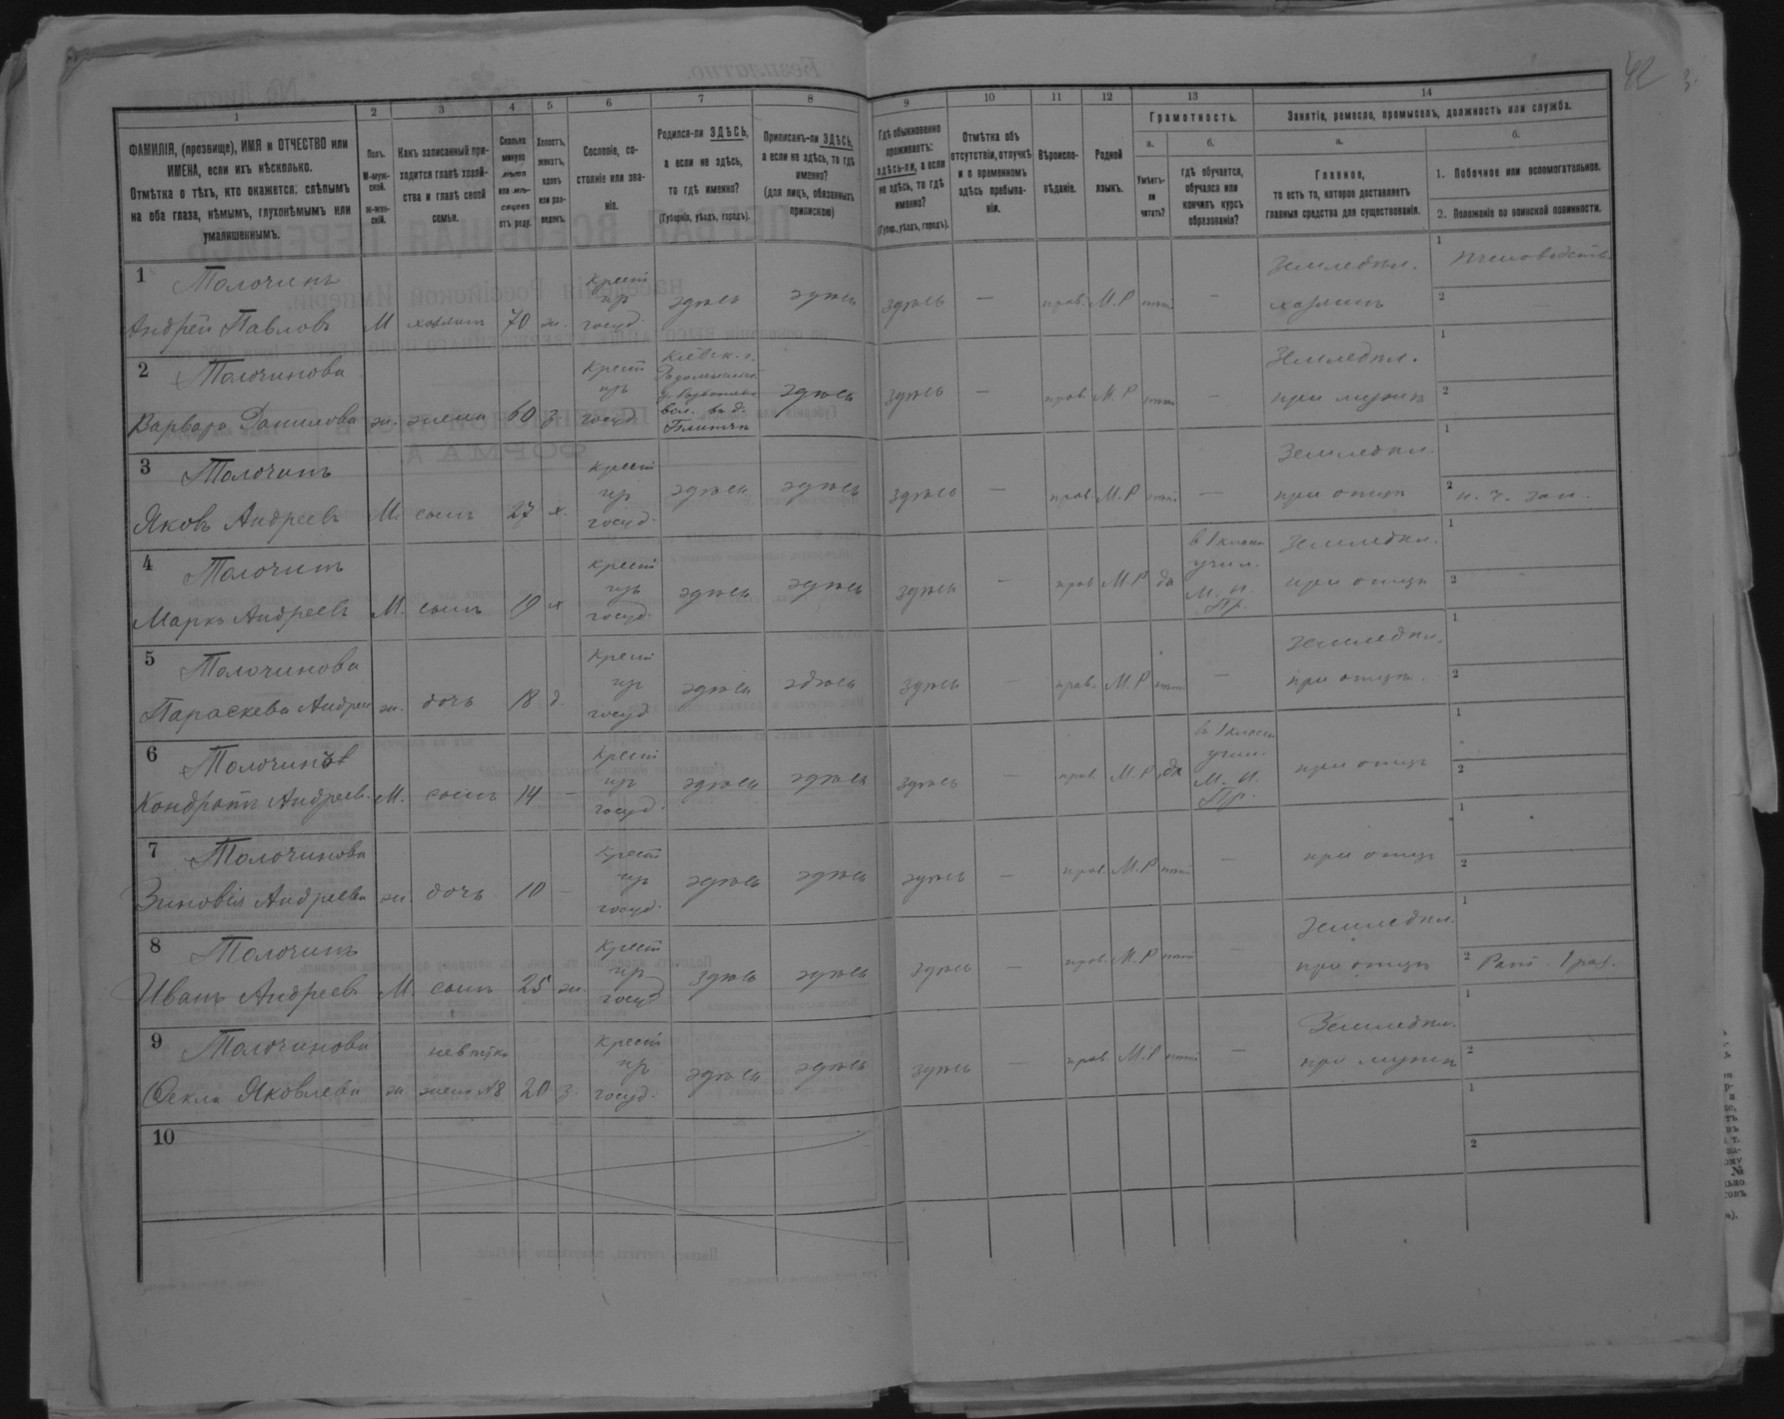 42 3.
1 2 3 4 5 6 7 8 9 10 11 12 13 14
ФАМИЛІЯ, (прозвище), ИМЯ и ОТЧЕСТВО или
ИМЕНА, если ихъ нѣсколько.
Отмѣтка о тѣхъ, кто окажется: слѣпымъ
на оба глаза, нѣмымъ, глухонѣмымъ или
умалишеннымъ.
Полъ.
М-муж-
ской.
Ж-жен-
скій.
Какъ записанный при-
ходится главѣ хозяй-
ства и главѣ своей
семьи.
Сколько
минуло
лѣтъ
или мѣ-
сяцевъ
отъ роду.
Холостъ,
женатъ,
вдовъ
или раз-
веденъ.
Сословіе, со-
стояніе или зва-
ніе.
Родился-ли ЗДѢСЬ,
а если не здѣсь,
то гдѣ именно?
(Губернія, уѣздъ, городъ).
Приписанъ-ли ЗДѢСЬ,
а если не здѣсь, то гдѣ
именно?
(для лицъ, обязанныхъ
припискою)
Гдѣ обыкновенно
проживаетъ:
здѣсь-ли, а если
не здѣсь, то гдѣ
именно?
(Губер., уѣздъ, городъ).
Отмѣтка объ
отсутствіи, отлучкѣ
и о временномъ
здѣсь пребыва-
ніи.
Вѣроиспо-
вѣданіе.
Родной
языкъ.
Грамотность.
а.
Умѣетъ-
ли
читать?
б.
гдѣ обучается,
обучался или
кончилъ курсъ
образованія?
Занятіе, ремесло, промыселъ, должность или служба.
а.
Главное,
то есть то, которое доставляетъ
главныя средства для существованія.
б.
1. Побочное или вспомогательное.
2. Положеніе по воинской повинности.
1 Толочинъ
Андрей Павловъ М хозяинъ 70 ж. крест из госуд. здѣсь здѣсь здѣсь — прав. М.Р нѣт — Земледѣл. хозяинъ 1 пчеловодств 2
2 Толочинова
Варвара Данилова ж. жена 60 з. крест из госуд. Кіевск. г.
вол. въ д.
здѣсь здѣсь — прав. М.Р нѣт — Земледѣл. при мужѣ 1 2
3 Толочинъ
Яковъ Андреевъ М. сынъ 27 х. крест из госуд. здѣсь здѣсь здѣсь — прав. М.Р нѣт — Земледѣл. при отцѣ 1 2 н. ч. зап.
4 Толочинъ
Маркъ Андреевъ М. сынъ 19 х крест из госуд. здѣсь здѣсь здѣсь — прав М.Р да в 1класн учил. М. Н. Пр. Земледѣл. при отцѣ 1 2
5 Толочинова
Параскева Андреев ж. дочь 18 д. крест из госуд здѣсь здѣсь здѣсь — прав. М.Р нѣт — Земледѣл. при отцѣ. 1 2
6 Толочинъ
Кондратъ Андреев. М. сынъ 14 — крест из госуд. здѣсь здѣсь здѣсь — прав. М.Р да в 1класн учил. М. Н. Пр. при отцѣ 1 2
7 Толочинова
Зиновія Андреева ж. дочь 10 — крест из госуд. здѣсь здѣсь здѣсь — прав. М.Р нѣт — при отцѣ 1 2
8 Толочинъ
Иванъ Андреевъ М. сынъ 25 ж. крест из госуд здѣсь здѣсь здѣсь — прав. М.Р нѣт — Земледѣл. при отцѣ 1 2 Рат. 1 раз.
9 Толочинова
Ѳекла Яковлева ж. невѣстка жена №8 20 з. крест из госуд. здѣсь здѣсь здѣсь — прав М.Р нѣт — Земледѣл. при мужѣ 1 2
10 1 2